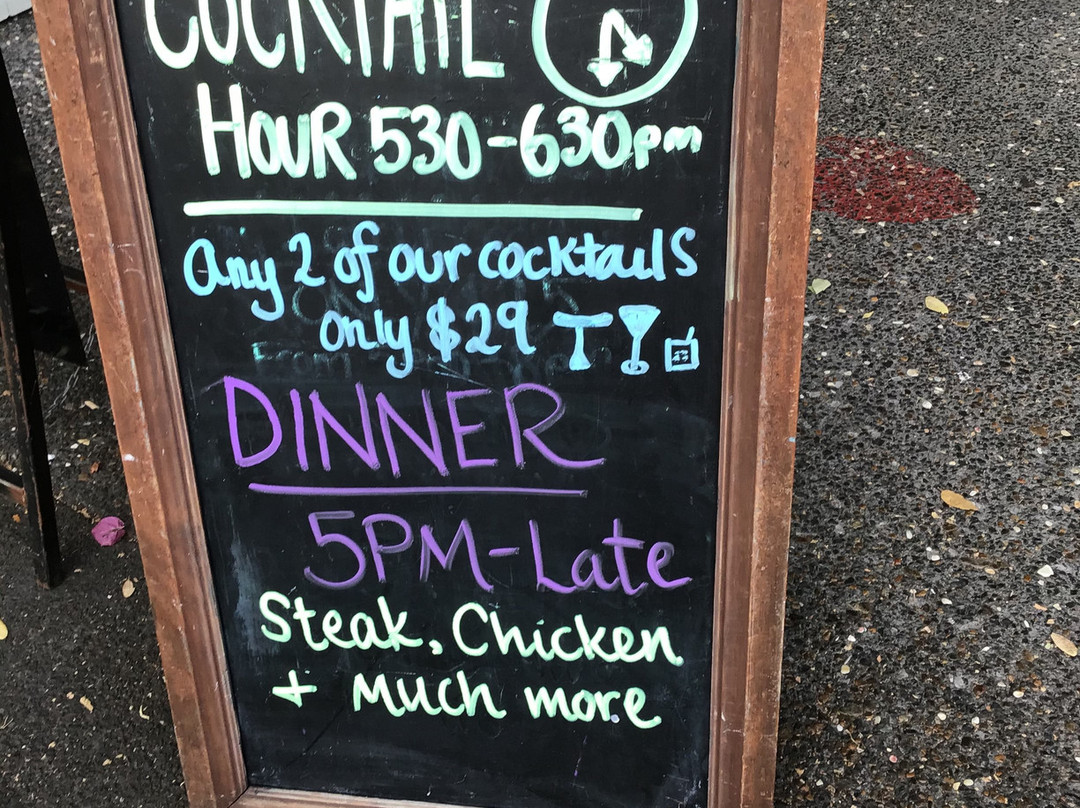 COCKTAIL
HOUR 530-630pm
Any 2 of our cocktails
only $29
DINNER
5PM-Late
Steak, Chicken
+ Much more